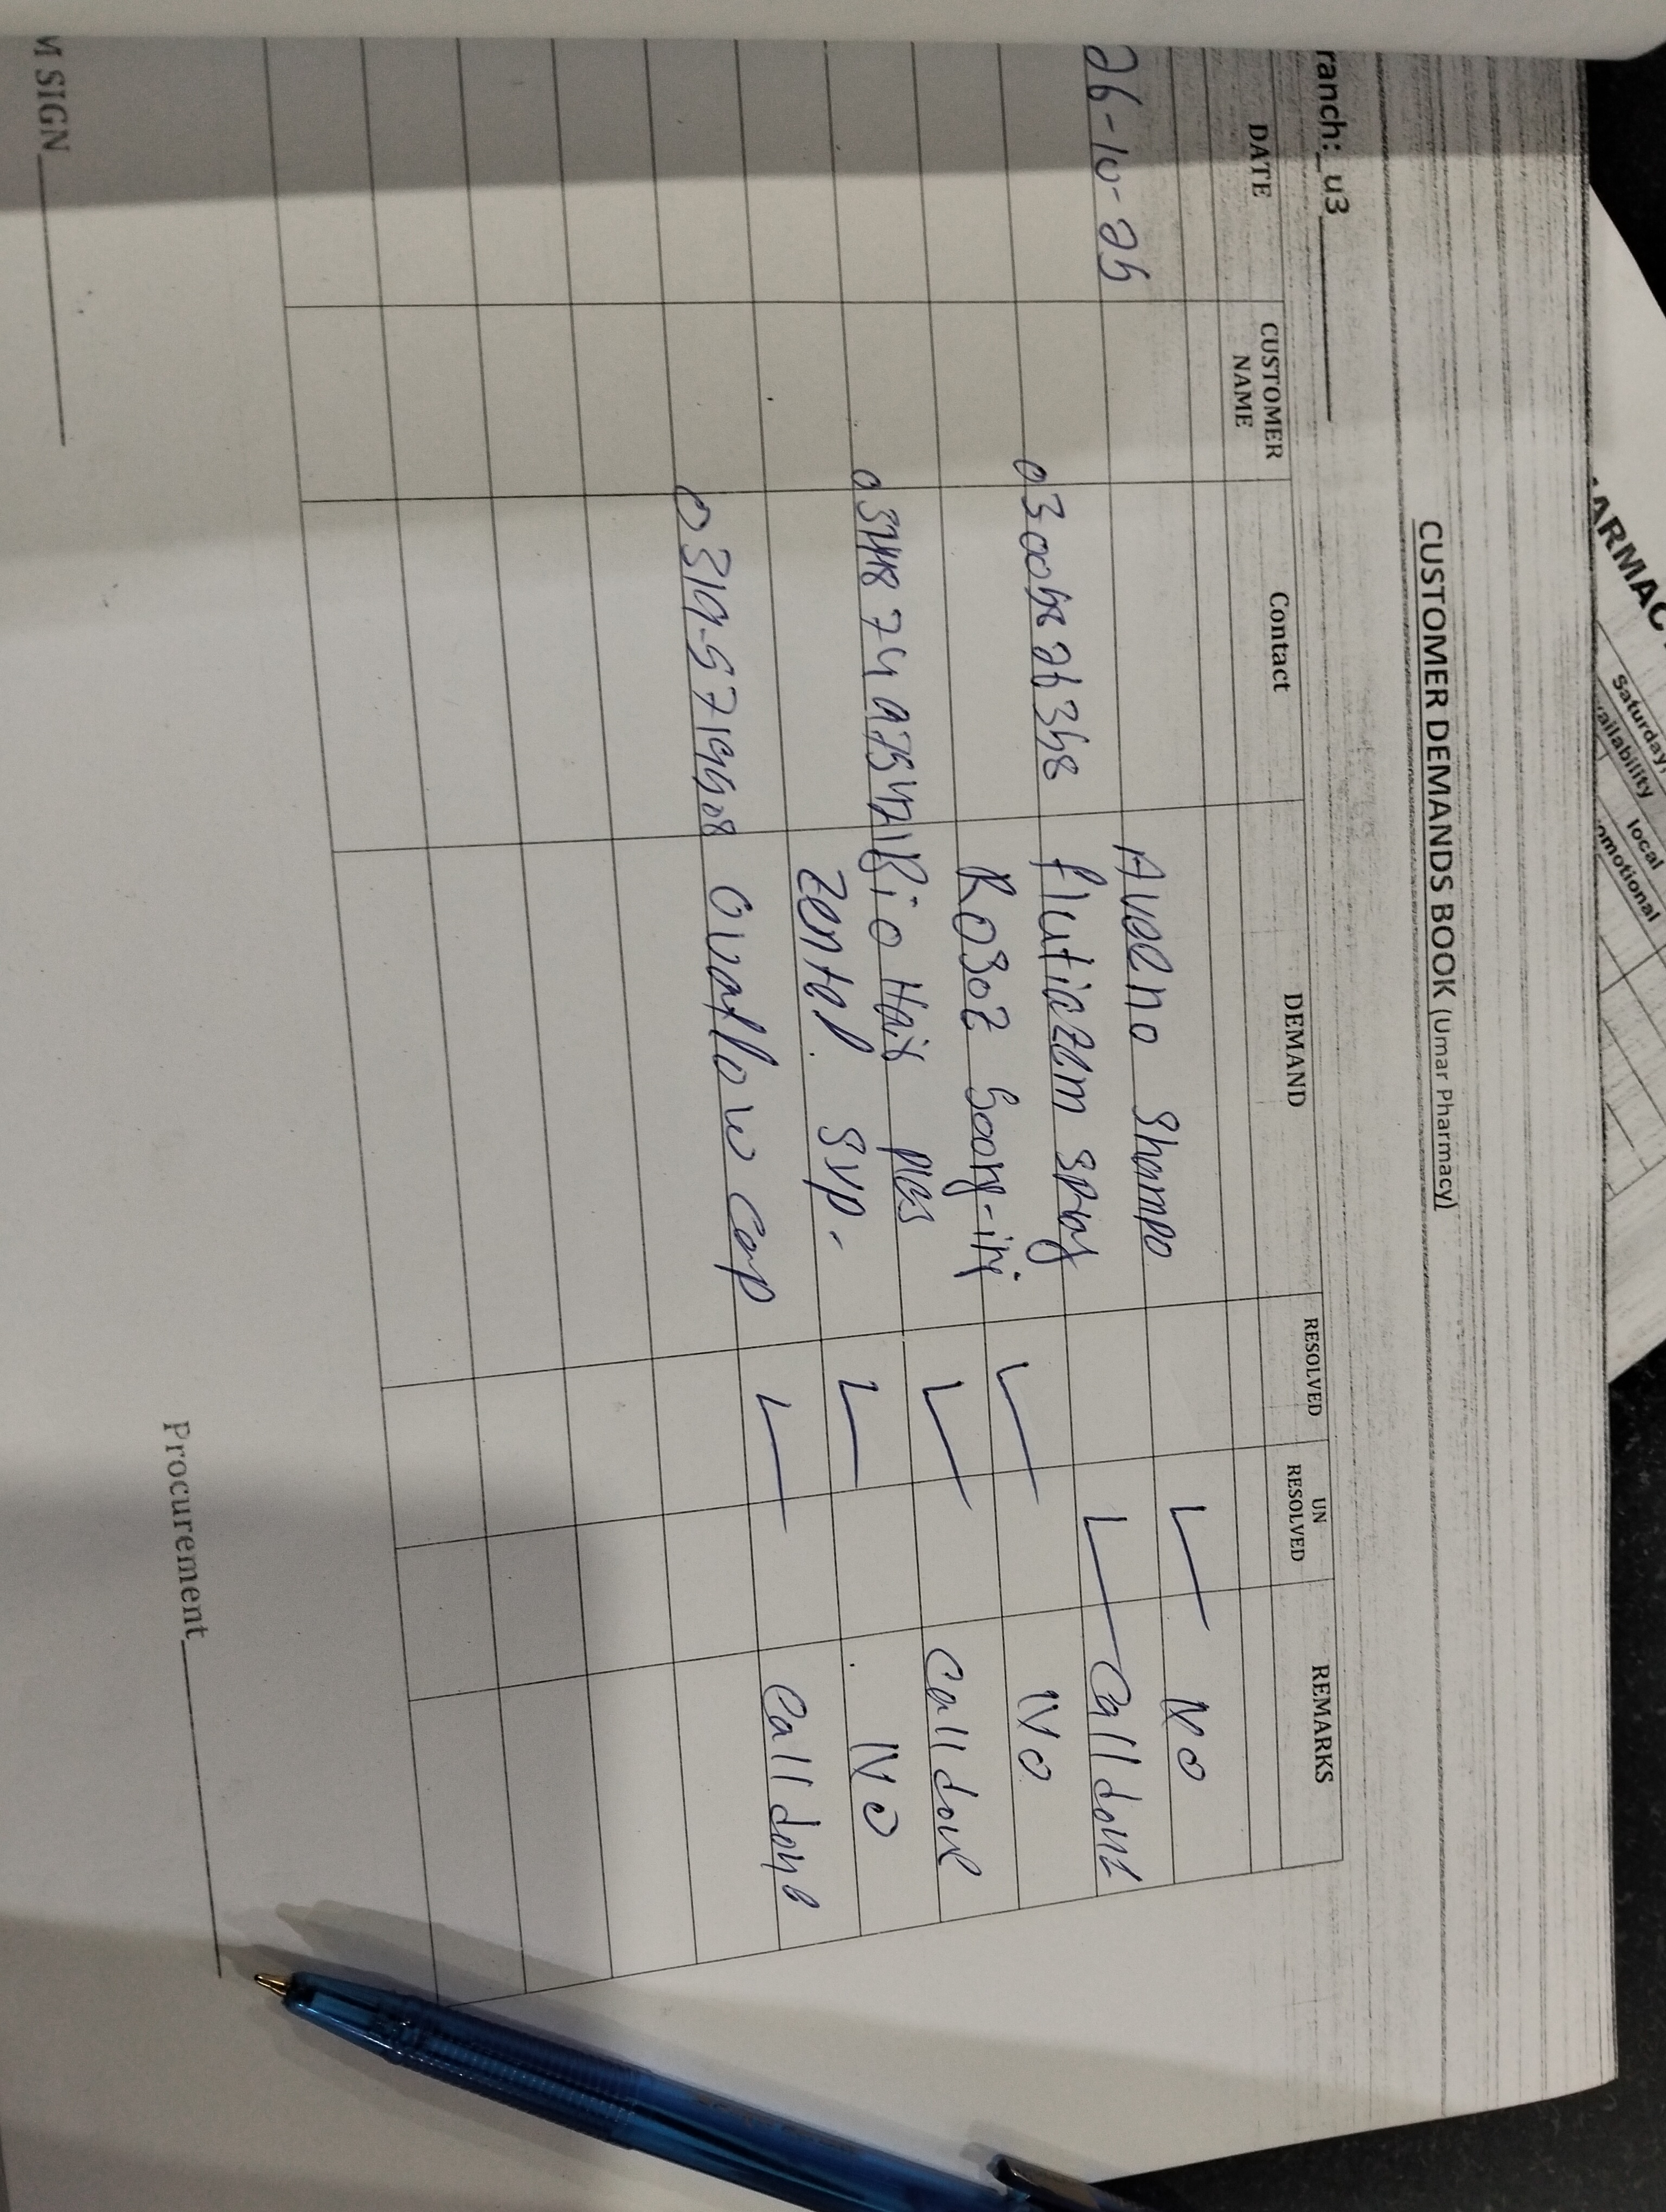 CUSTOMER DEMANDS BOOK (Umar Pharmacy)
ranch: u3
DATE CUSTOMER NAME Contact DEMAND RESOLVED UN RESOLVED REMARKS
26-10-25 Aveeno Shampo ✓ NO
Flutiazem spray ✓ Call done
Rosoz inj ✓ NO
Bio Hair ✓ Call done
Zental syp. ✓ NO
Ovaflow Cap ✓ Call done
M SIGN
Procurement
ARMAC
Saturday,
ailability
local
omotional